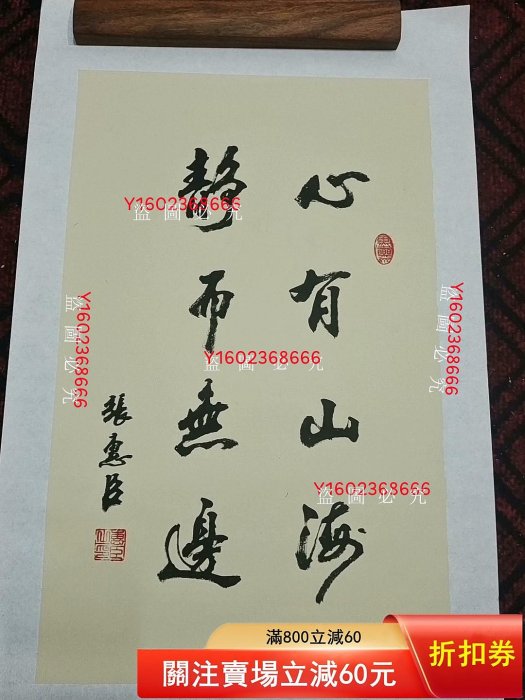 心有山海
靜而無邊
張惠臣
Y1602368666
盜圖必究
Y1602368666
盜圖必究
Y1602368666
盜圖必究
Y1602368666
盜圖必究
Y1602368666
盜圖必究
滿800立減60
關注賣場立減60元
折扣券